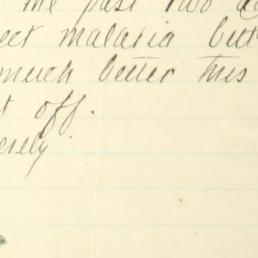 the past two d
eet malaria but
much better this
t off.
erely